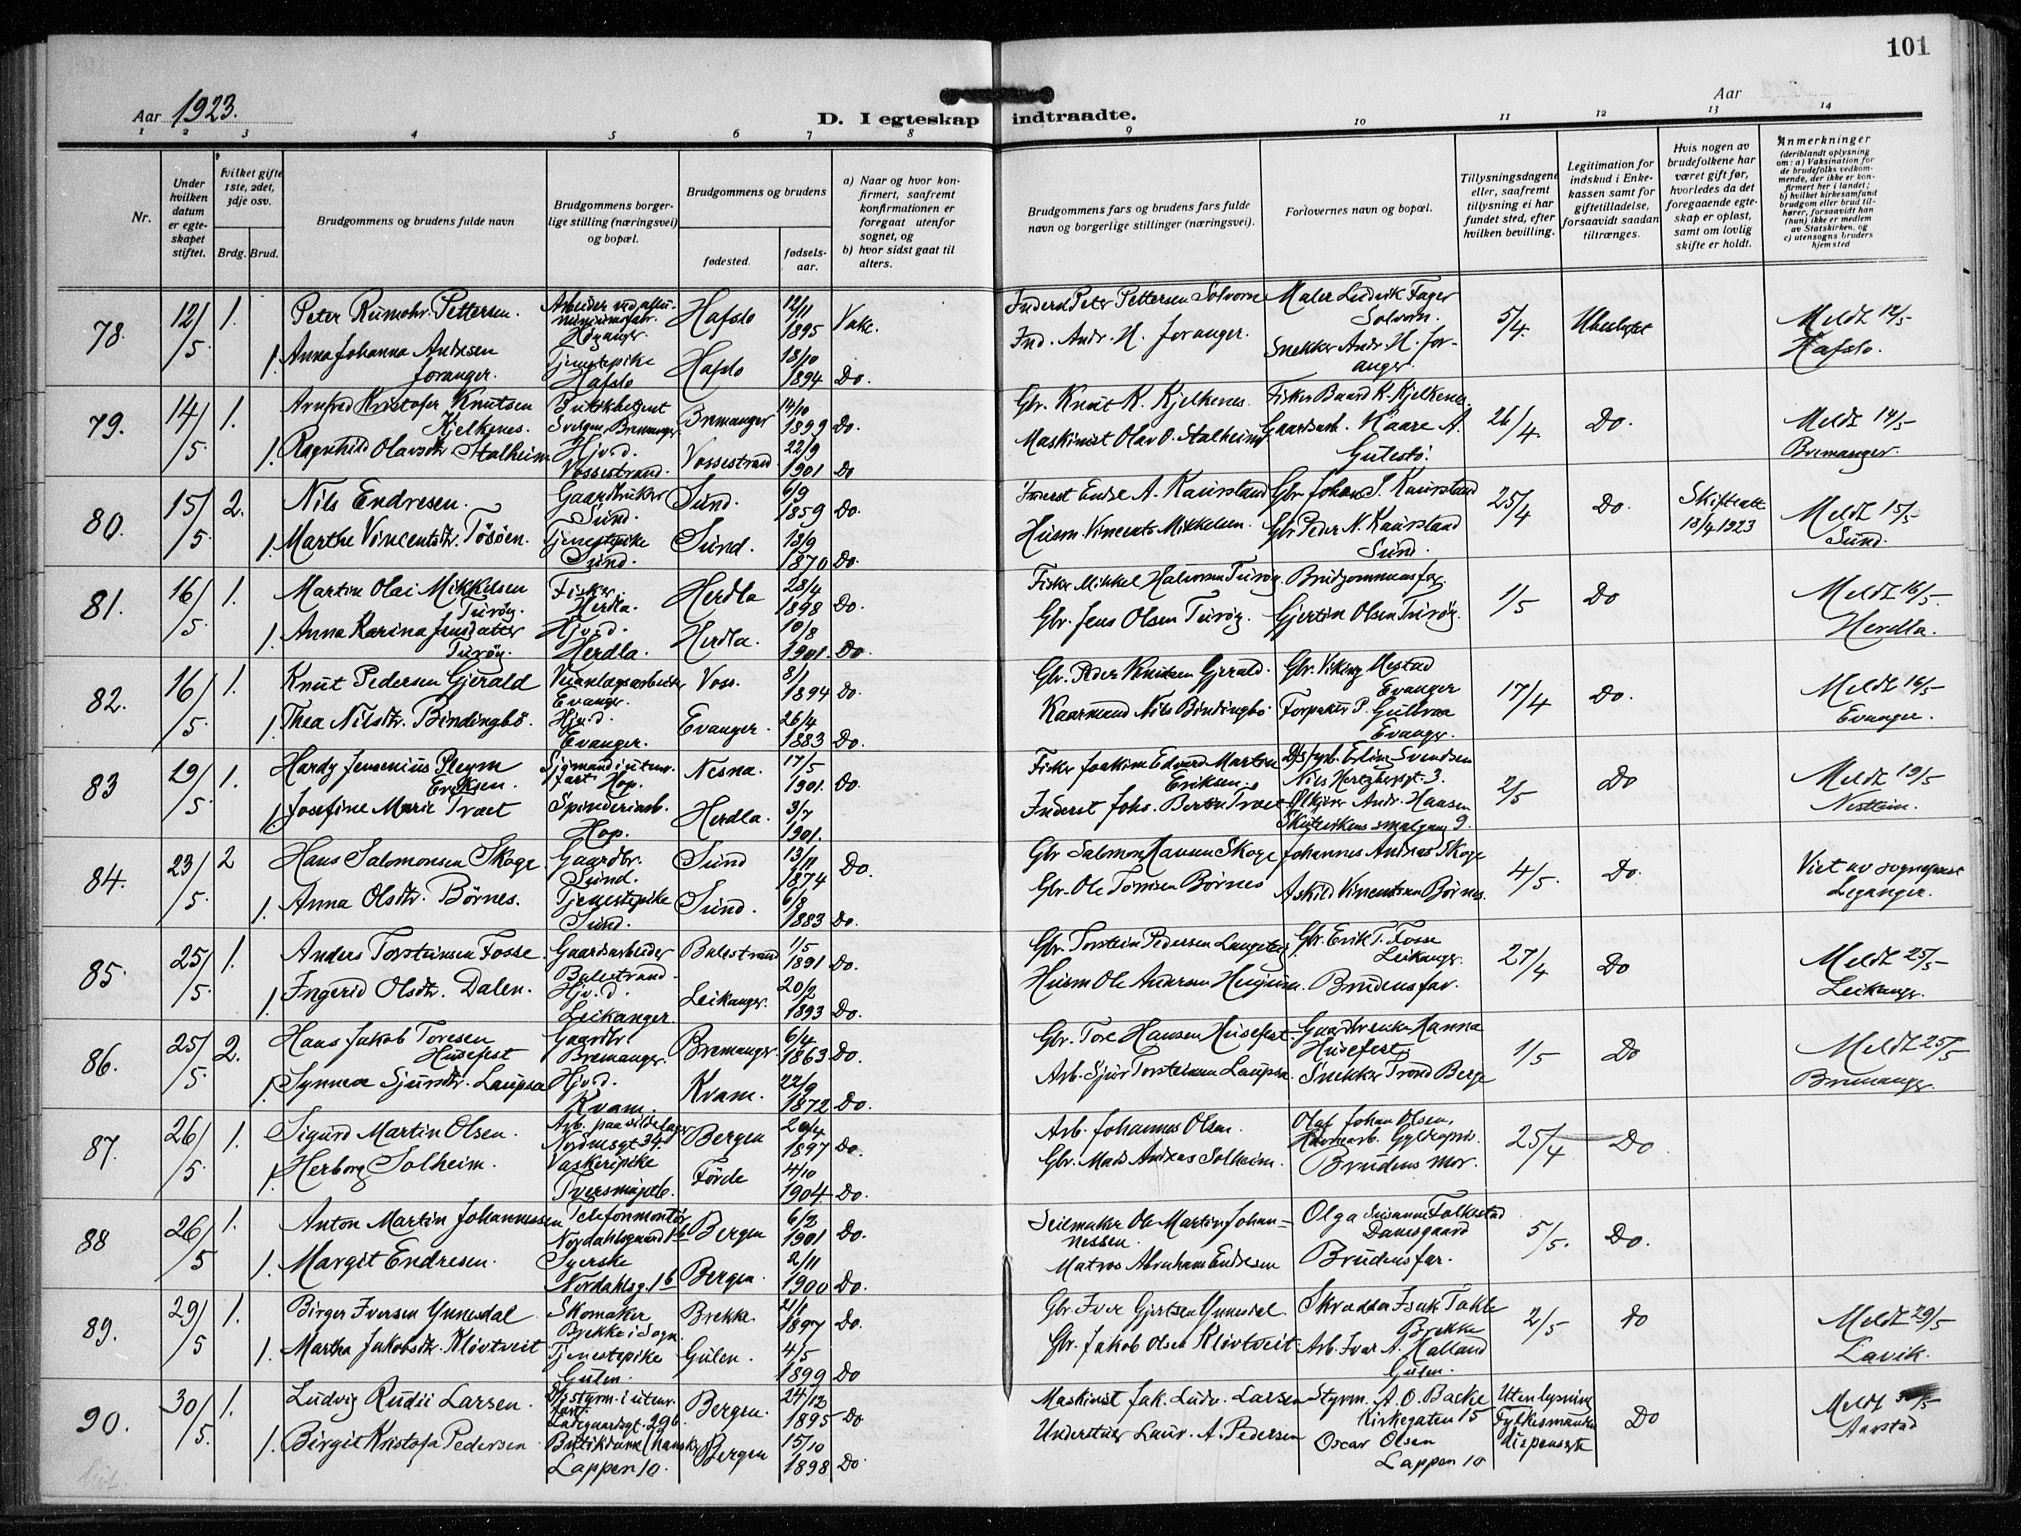 101
Aar 1923.
D. I egteskap indtraadte.
Aar
1 2 3 4 5 6 7 8 9 10 11 12 13 14
Nr.
Under hvilken datum er egteskapet stiftet.
hvilket gifte 1ste, 2det, 3dje osv.
Brdg. Brud.
Brudgommens og brudens fulde navn
Brudgommens borgerlige stilling (næringsvei) og bopæl.
Brudgommens og brudens
fødested.
fødselsaar.
a) Naar og hvor konfirmert, saafremt konfirmationen er foregaat utenfor sognet, og
b) hvor sidst gaat til alters.
Brudgommens fars og brudens fars fulde navn og borgerlige stillinger (næringsvei).
Forlovernes navn og bopæl.
Tillysningsdagene eller, saafremt tillysning ei har fundet sted, efter hvilken bevilling.
Legitimation for indskud i Enkekassen samt for giftetilladelse, forsaavidt saadan tiltrænges.
Hvis nogen av brudefolkene har været gift før, hvorledes da det foregaaende egteskap er opløst, samt om lovlig skifte er holdt.
Anmerkninger (deriblandt oplysning om: a) Vaksination for de brudefolks vedkommende, der ikke er konfirmert her i landet; b) hvilket kirkesamfund brudgom eller brud tilhører, forsaavidt han (hun) ikke er medlem av Statskirken, og c) utensogns bruders hjemsted
78. 12/5 1. Peter Rumohr Pettersen. Høyanger Hafslo 12/11 1895 Vake. Inderst Peter Pettersen Solvorn Maler Ludvik Fager Solvorn. 5/4. Ubeslegtet Meldt 12/5 Hafslo.
1. Anna Johanna Andresen Joranger. Tjenestepike Hafslo Hafslo 18/10 1894 Do. Ind. Andr. H. Joranger. Snekker Andr. H. Joranger.
79. 14/5 1. Arnfred Kristofer Knutsen Kjelkenes. Svelgen, Bremanger Bremanger 14/10 1899 Do. Gbr. Knut K. Kjelkenes. Fisker Baard K. Kjelkenes. 26/4. Do. Meldt 14/5 Bremanger.
1. Ragnhild Olavsdtr. Stalheim Hjv.d. Vossestrand. Vossestrand 22/9 1901 Do Maskinist Olav O. Stalheim Gaardsarb. Kaare A.
80. 15/5 2. Nils Endresen. Gaardbruker Sund. Sund. 6/9 1859 Do. Inderst Endre A. Kaurstand Gbr. Johan S. Kaurstand 25/4 Do. Skifteatt 13/4 1923 Meldt 15/5 Sund.
1. Marthe Vincentsdtr. Tøsøen. Tjenestepike Sund. Sund. 13/9 1870 Do. Husm Vincents Mikkelsen. Gbr Peder N. Kaurstand Sund.
81. 16/5 1. Marton Olai Mikkelsen Turøy. Fisker Herdla. Herdla 28/4 1898 Do. Fisker Mikkel Halvorsen Turøy. Brudgommens far. 1/5 Do Meldt 16/5. Herdla.
1. Anna Karina Jensdatter Turøy. Hjv.d. Herdla. Herdla. 10/8 1901. Do. Gbr. Jens Olsen Turøy. Gjertin Olsen Turøy.
82. 16/5 1. Knut Pedersen Gjerald Evanger. Voss. 8/1 1894 Do. Gbr. Peder Knutsen Gjerald. Gbr. Viking Mestad Evanger 17/4 Do. Meldt 16/5 Evanger.
1. Thea Nilsdtr. Bindingbø. Hjv.d. Evanger. Evanger. 26/4 1883 Do. Kaarmand Nils Bindingbø Forpakter P. Gullbraa Evanger.
83 29/5. 1. Hardy Jensenius Pleym Eriksen. Sjømand i utenr. fart. Hop. Nesna. 17/5 1901. Do. Fisker Joakim Edvard Martin Eriksen. Svendsen Nils Hertzbergsgt. 3. 2/5 Do Meldt 19/5
1. Josefine Marie Træet Spinderiarb. Hop. Herdla. 3/7 1901. Inderst Johs. Bertin Træet Andr. Hansen 9.
84. 23/5. 2 Hans Salomonsen Skoge Gaardbr. Sund. Sund 13/11 1874 Do. Gbr Salomon Hansen Skoge Johannes Andreas Skoge 4/5. Do. Viet av sogneprest Leganger.
1. Anna Olsdtr. Børnes. Tjenestepike Sund. Sund. 6/8 1883 Do. Gbr. Ole Børnes Askild Vincentsen Børnes.
85. 25/5. 1. Anders Torsteinsen Fosse. Gaardsarbeider Balestrand. Balestrand 1/5 1891 Do. Gbr. Torstein Pedersen Langeteig Gbr. Erik T. Fosse Leikanger. 27/4 Do Meldt 25/5 Leikanger.
1. Ingerid Olsdtr. Dalen. Hjv.d. Leikanger Leikanger. 20/2 1893 Do. Husm Ole Andersen Brudens far.
86. 25/5. 2. Hans Jakob Toresen Husefest Gaardbr Bremanger. Bremanger 6/4 1863 Do. Gbr. Tore Hansen Husefest Gaardbrenke Hanna Husefest 1/5 Do Meldt 25/5 Bremanger.
1. Synneva Sjursdtr. Laupsa Hjv.d. Kvam. Kvam. 22/9 1872 Do. Arb. Sjur Torsteinsen Laupsa. Snekker Trond Berge
87. 26/5. 1. Sigurd Martin Olsen. Bergen 1897 Do. Arb. Johannes Olsen. Olaf Johan Olsen, 25/4 Do
1. Herborg Solheim. Vaskeripike Førde 4/10 1904 Do. Gbr. Mads Andreas Solheim. Brudens mor.
88 26/5 1. Anton Martin Johannessen Telefonmontør Bergen 6/3 1901 Do. Seilmaker Ole Martin Johannessen. Olga Susanne Falkestad Damsgaard 5/5. Do.
1. Margit Endresen. Syerske Nordahlsg. 1b Bergen. 2/11 1900 Do. Matros Abraham Endresen Brudens far.
89. 29/5 1. Birger Iversen Ynnesdal Skomaker Brekke i Sogn. Brekke 21/1 1897 Do. Gbr Iver Gjertsen Ynnesdal. Skrædder Isak Takle Brekke 2/5 Do Meldt 29/5 Lavik.
1. Martha Jakobsdtr. Kløvtveit Tjenestepike Gulen. Gulen. 4/5 1899 Do Gbr. Jakob Olsen Kløvtveit. Arb. Ivar A. Halland Gulen.
90. 30/5. 1. Ludvig Rudii Larsen. D/s styrm. i utenr. fart. Ladegaardsgt. 29b. Bergen. 24/12 1895 Do Maskinist Jak. Ludv. Larsen Styrm. A. O. Backe Kirkegaten 15 Uten lysning Fylkesmanden dispenserte Do Meldt 30/5 Aarstad
1. Birgit Kristofa Pedersen Lappen 10. Bergen 15/10 1898 Do. Laur. A. Pedersen Oscar Olsen Lappen 10